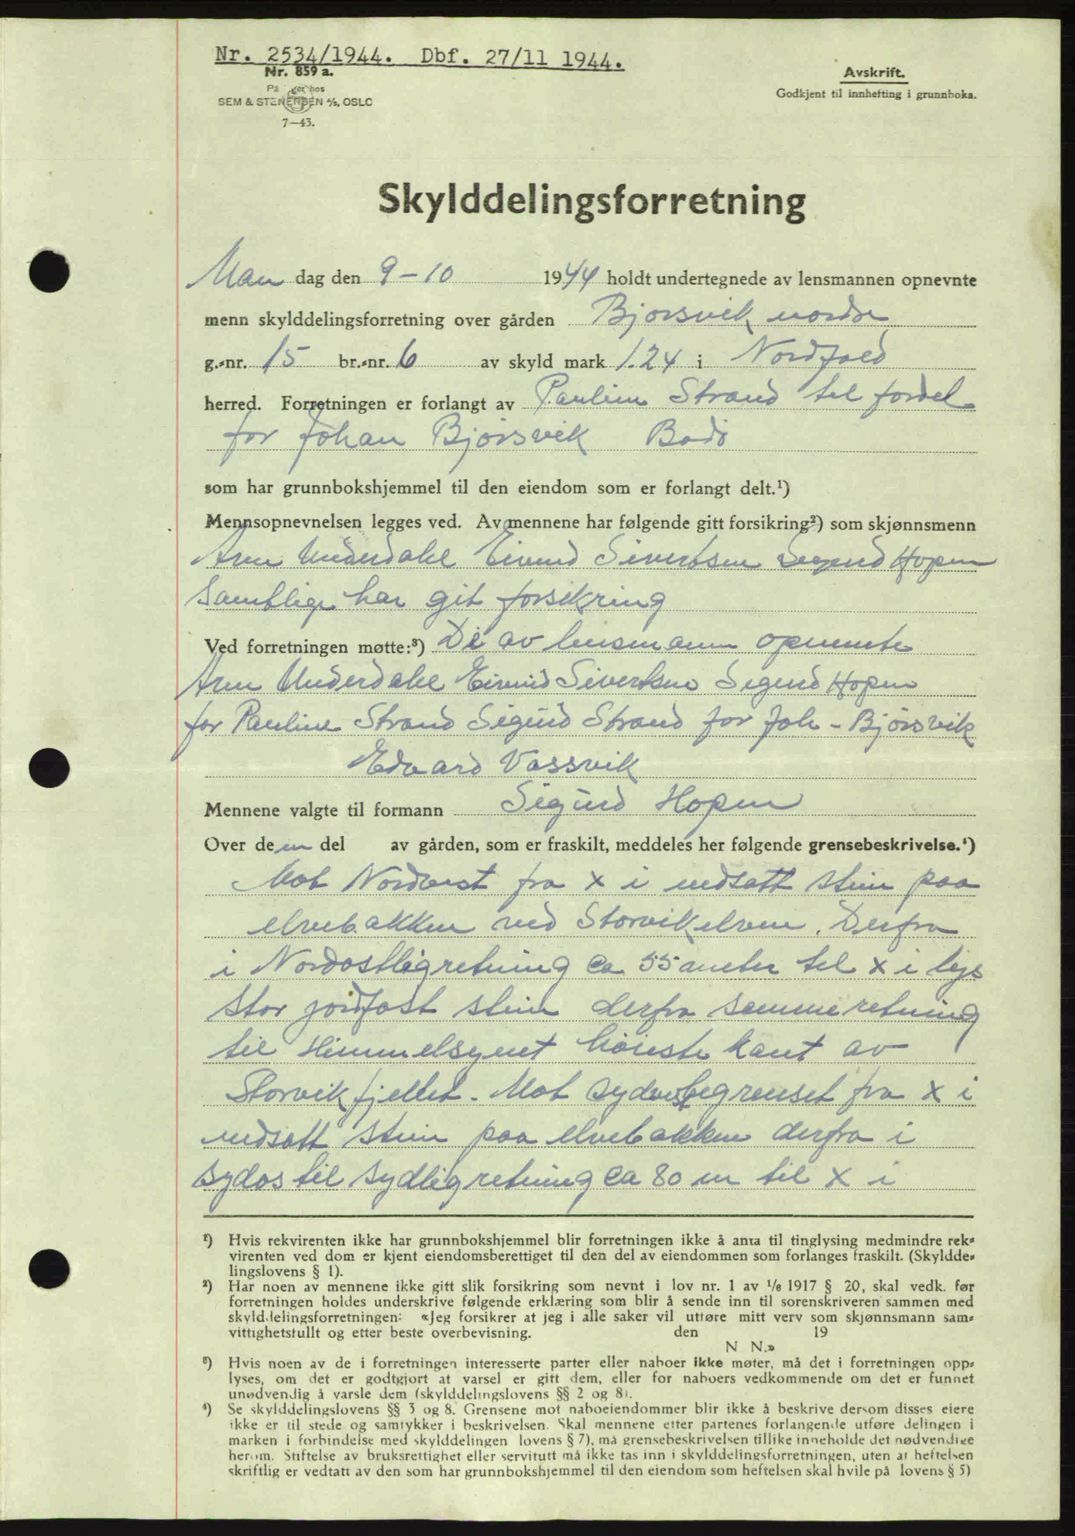 Nr. 2534/1944. Dbf. 27/11 1944.
Nr. 859 a.
På lager hos
SEM & STENERSEN A/S, OSLO
7—43.
Avskrift.
Godkjent til innhefting i grunnboka.
Skylddelingsforretning
Man dag den 9-10 1944 holdt undertegnede av lensmannen opnevnte
menn skylddelingsforretning over gården Bjørsvik nordre
g.-nr. 15 br.-nr. 6 av skyld mark 1.24 i Nordfold
herred. Forretningen er forlangt av Pauline Strand til fordel
for Johan Bjørsvik Bodø
som har grunnbokshjemmel til den eiendom som er forlangt delt.¹)
Mennsopnevnelsen legges ved. Av mennene har følgende gitt forsikring²) som skjønnsmenn
Arne Underdahl Eivind Sivertsen Sigurd Hopen
Samtlige har git forsikring
Ved forretningen møtte:³) De av lensmann opnevnte
Arne Underdahl Eivind Sivertsen Sigurd Hopen
for Pauline Strand Sigurd Strand for Joh - Bjørsvik
Edvard Vassvik
Mennene valgte til formann Sigurd Hopen
Over den del av gården, som er fraskilt, meddeles her følgende grensebeskrivelse.⁴)
Mot Nordvest fra x i nedsatt stein paa
elvebakken ved Storvikelven. Derfra
i Nordostlig retning ca 55 meter til x i
stor jordfast stein derfra samme retning
til Himmelsynet høieste kant av
Storvikfjellet. Mot sydvest begrenset fra x i
nedsatt stein paa elvebakken derfra i
sydostil sydlig retning ca 80 m til x i
¹) Hvis rekvirenten ikke har grunnbokshjemmel blir forretningen ikke å anta til tinglysing medmindre rek-
virenten ved dom er kjent eiendomsberettiget til den del av eiendommen som forlanges fraskilt. (Skyldde-
lingslovens § 1).
²) Har noen av mennene ikke gitt slik forsikring som nevnt i lov nr. 1 av 1/6 1917 § 20, skal vedk. før
forretningen holdes underskrive følgende erklæring som blir å sende inn til sorenskriveren sammen med
skylddelingsforretningen: «Jeg forsikrer at jeg i alle saker vil utføre mitt verv som skjønnsmann sam-
vittighetsfullt og etter beste overbevisning. den 19
N N.»
³) Hvis noen av de i forretningen interesserte parter eller naboer ikke møter, må det i forretningen opp-
lyses, om det er godtgjort at varsel er gitt dem, eller for naboers vedkommende om det er funnet
unødvendig å varsle dem (skylddelingslovens §§ 2 og 8).
⁴) Se skylddelingslovens §§ 3 og 8. Grensene mot naboeiendommer blir ikke å beskrive dersom disses eiere
ikke er til stede og samtykker i beskrivelsen. Skal mennene etter partenes forlangende utføre delingen i
marken i forbindelse med skylddelingen lovens § 7), må grensebeskrivelsen tillike inneholde det nødvendige
herom. Stiftelse av bruksrettighet eller servitutt må ikke tas inn i skylddelingsforretningen, uten at heftelsen
skriftlig er vedtatt av den som har grunnbokshjemmel til den eiendom som heftelsen skal hvile på lovens § 5)